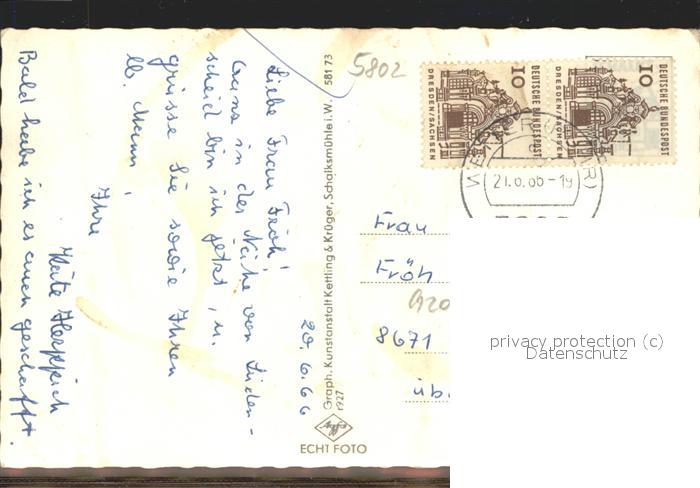 20.6.66
Liebe Frau Fröh!
Ganz in der Nähe von Lüden-
scheid bin ich jetzt, u.
grüsse Sie sowie Ihren
lb. Mann!
Ihre
Käte Herppich
Bald habe ich es auch geschafft.
Graph. Kunstanstalt Kettling & Krüger, Schalksmühle i. W. 581 73
r927
ECHT FOTO
5802
10
DEUTSCHE BUNDESPOST
DRESDEN/SACHSEN
10
DEUTSCHE BUNDESPOST
DRESDEN/SACHSEN
21.6.66-19
Frau
Fröh
8671
üb.
privacy protection (c)
Datenschutz